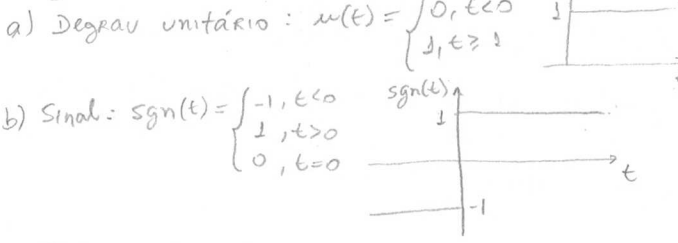 a) Degrau unitário : u(t) = { 0, t<0
1, t≥1
1
b) Sinal : sgn(t) = { -1, t<0
1, t>0
0, t=0
sgn(t)
1
t
-1